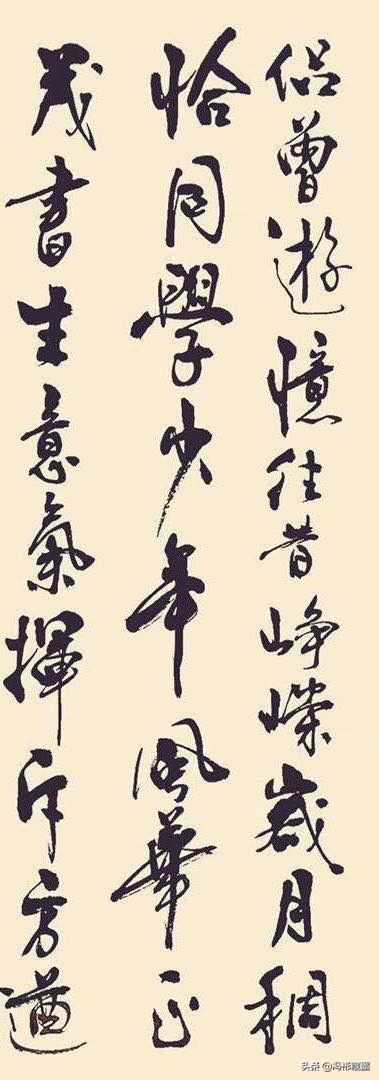 侶曾遊憶往昔崢嶸歲月稠
恰同學少年風華正
茂書生意氣揮斥方遒
头条